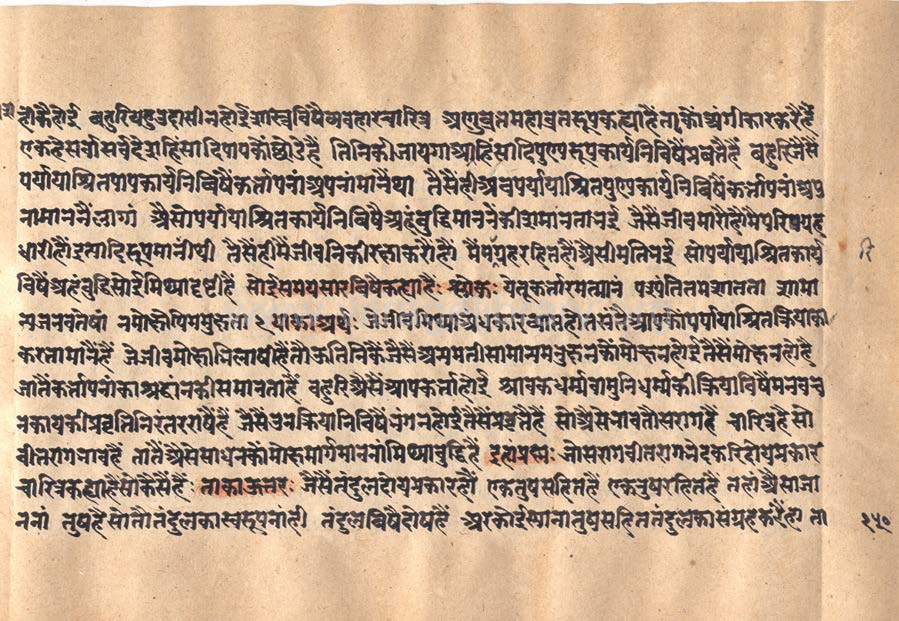 होकैहोई बहुरि यहु उदासीन होई शास्त्रविषै व्यवहारचारित्र अणुव्रतमहाव्रतरूप कह्या है ताकौं अंगीकार करै है
एकदेस वा सर्वदेश हिंसादि पापकौं छोडे है तिनिकी जायगा अहिंसादि पुण्यरूप कार्यनिविषैं प्रवर्तै है बहुरि जैसैं
पर्यायाश्रित पापकार्यनिविषैं कर्तापनां अपनां मानै था तैसैंही अब पर्यायाश्रित पुण्यकार्यनिविषैं कर्तापनां अपु
नामाननैं लागा अैसो पर्यायाश्रित कार्यनिविषै अहंबुद्धि माननैंकी समानता भई जैसैं जीव मारौंहौं मै परिग्रह
धारीहौं इत्यादिरूप मानी थी तैसैंही मैं जीवनिकी रक्षा करौंहौं मैं परिग्रहरहित हौं अैसी मानि भई सो पर्यायाश्रित कार्य
विषैं अहंबुद्धि सोई मिथ्यादृष्टी है सोई समयसारविषै कह्या है: श्लोक: ये तु कर्तारमात्मानं पश्यंति तमसातता सामा
न्यजनवत्तेषां न मोक्षोपि मुमुक्षता २ याका अर्थ: जे जीव मिथ्या अंधकार व्याप्त होत संतै आपकौं पर्यायाश्रित क्रियाका
करता मानैं हैं ते जीव मोक्षाभिलाषी हैं तौऊ तिनिकैं जैसैं अन्यमती सामान्य मनुष्यनकौं मोक्ष न होई तैसैं मोक्ष न हो है
जातैं कर्तापनांका श्रद्धानकी समानता है बहुरि अैसैं आप कर्ता होई श्रावकधर्म वा मुनिधर्मकी क्रियाविषैं मन वच
नकायकी प्रवृत्ति निरंतर राषै है जैसैं उन क्रियानिविषैं भंग न होई तैसैं प्रवर्तै है सो अैसे भाव तौ सराग है चारित्र है सो
वीतराग भाव है तातैं अैसे साधनकौं मोक्षमार्ग माननां मिथ्याबुद्धि है इहां प्रश्न: जो सराग वीतराग भेदकरि दोय प्रकार
चारित्र कह्या है सो कैसैं है: ताका उत्तर: जैसैं तंदुल दोय प्रकार हैं एक तुष सहित है एक तुष रहित है तहां अैसा जा
ननां तुष है सो तौ तंदुलका स्वरूप नांही तंदुलविषै दोष है अर कोई स्याना तुष सहित तंदुलका संग्रह करै हा ता
२५०